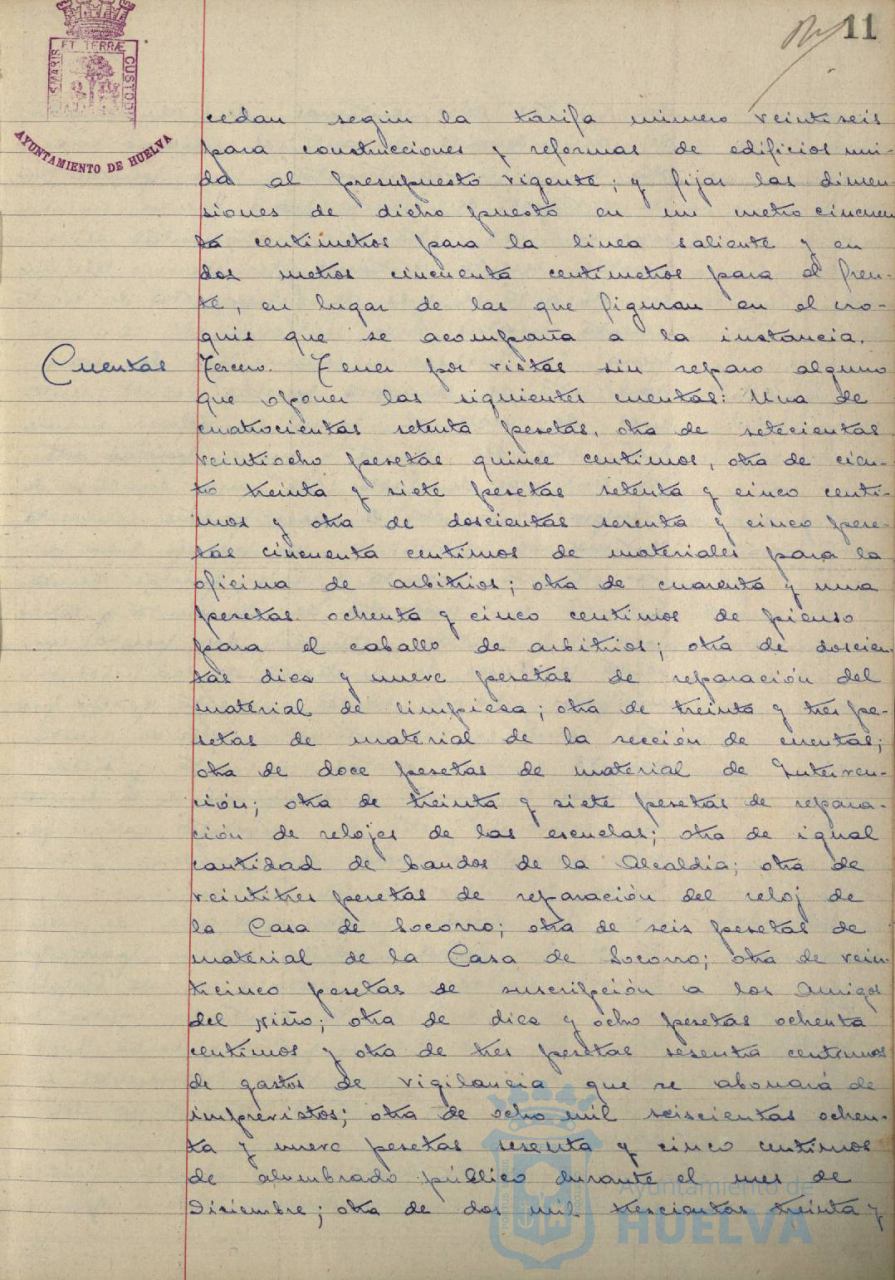 11
PORTUS MARIS ET TERRÆ CUSTODIA
AYUNTAMIENTO DE HUELVA
cedan según la tarifa número veintiseis
para construcciones y reformas de edificios uni-
da al presupuesto vigente; y fijar las dimen-
siones de dicho puesto en un metro cincuen
ta centimetros para la linea saliente y en
dos metros cincuenta centimetros para el fren-
te, en lugar de las que figuran en el cro-
quis que se acompaña a la instancia.
Cuentas
Tercero. Tener por vistas sin reparo alguno
que oponer las siguientes cuentas: Una de
cuatrocientas setenta pesetas, otra de setecientas
veintiocho pesetas quince centimos, otra de cien-
to treinta y siete pesetas setenta y cinco centi-
mos y otra de doscientas sesenta y cinco pese-
tas cincuenta centimos de materiales para la
oficina de arbitrios; otra de cuarenta y una
pesetas ochenta y cinco centimos de pienso
para el caballo de arbitrios; otra de doscien-
tas diez y nueve pesetas de reparación del
material de limpieza; otra de treinta y tres pe-
setas de material de la sección de cuentas;
otra de doce pesetas de material de Interven-
ción; otra de treinta y siete pesetas de repara-
ción de relojes de las escuelas; otra de igual
cantidad de bandos de la Alcaldía; otra de
veintitres pesetas de reparación del reloj de
la Casa de Socorro; otra de seis pesetas de
material de la Casa de Socorro; otra de vein-
ticinco pesetas de suscripción a los Amigos
del Niño; otra de diez y ocho pesetas ochenta
centimos y otra de tres pesetas sesenta centimos
de gastos de vigilancia que se abonará de
imprevistos; otra de ocho mil seiscientas ochen-
ta y nueve pesetas sesenta y cinco centimos
de alumbrado público durante el mes de
Diciembre; otra de dos mil trescientas treinta y
Ayuntamiento de
HUELVA